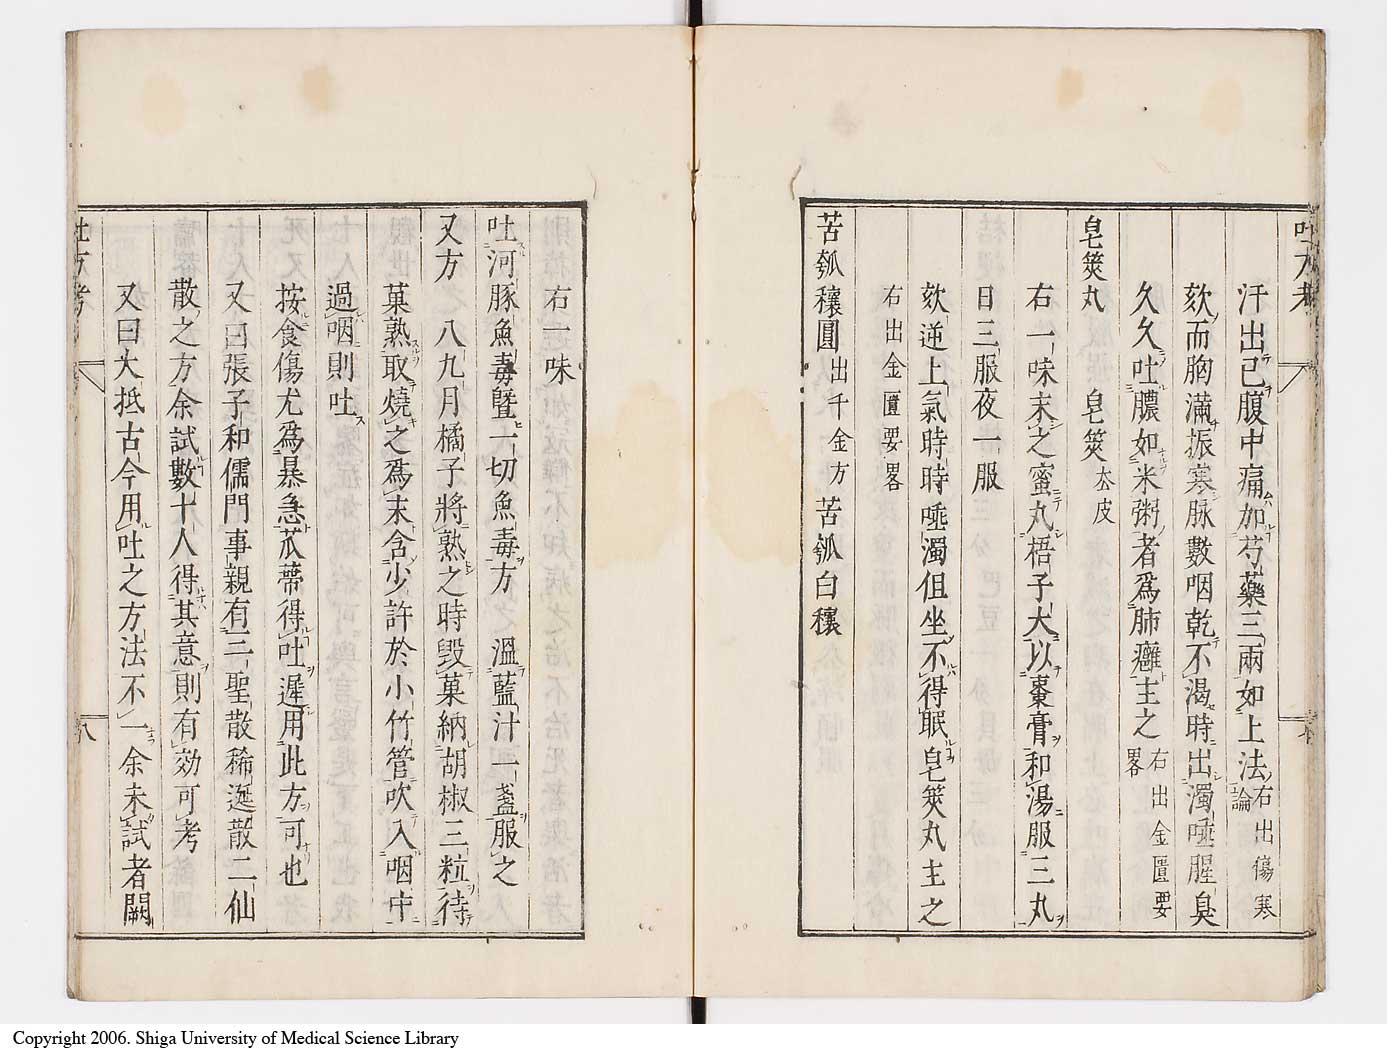 吐方考
汗出已腹中痛加芍藥三兩如上法右出傷寒論
欬而胸滿振寒脉數咽乾不渴時出濁唾腥臭
久久吐膿如米粥者爲肺癰主之右出金匱要畧
皂筴丸　皂筴去皮
右一味末之蜜丸梧子大以棗膏和湯服三丸
日三服夜一服
欬逆上氣時時唾濁但坐不得眠皂筴丸主之
右出金匱要畧
苦瓠穰圓出千金方　苦瓠白穰
右一味
吐河豚魚毒曁一切魚毒方　溫藍汁一盞服之
又方　八九月橘子將熟之時毀菓納胡椒三粒待
菓熟取燒之爲末含少許於小竹管吹入咽中
過咽則吐
按食傷尤爲暴急苽蔕得吐遲用此方可也
又曰張子和儒門事親有三聖散稀涎散二仙
散之方余試數十人得其意則有効可考
又曰大抵古今用吐之方法不一余未試者闕
吐方考　八
Copyright 2006. Shiga University of Medical Science Library